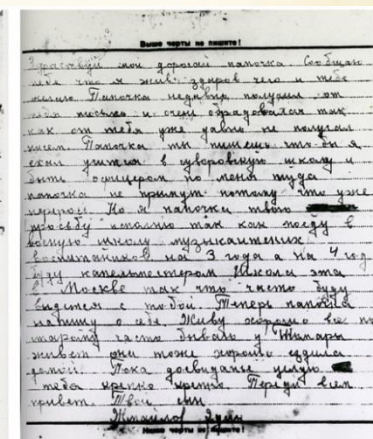 Выше черты не пишите!
Здраствуй мой дорогой папочка. Сообщаю
тебе что я жив, здоров чего и тебе
желаю. Папочка недавно получил от
тебя письмо и очень обрадовался так
как от тебя уже давно не получал
писем. Папочка ты пишешь что-бы я
ехал учится в суворовскую школу и
быть офицером но меня туда
папочка не примут потому что уже
перерос. Но я папочка твою
просьбу исполню так как поеду в
военую школу музыкантских
воспитанников на 3 года а на 4 год
буду капельмейстером Школа эта
в Москве так что часто буду
видится с тобой. Теперь папочка
напишу о себе. Живу хорошо все по
старому часто бываю у Тамары
живет она тоже хорошо ездила
домой. Пока досвиданье целую
тебя крепко крепко. Передай всем
привет. Твой сын
Ниже черты не пишите!